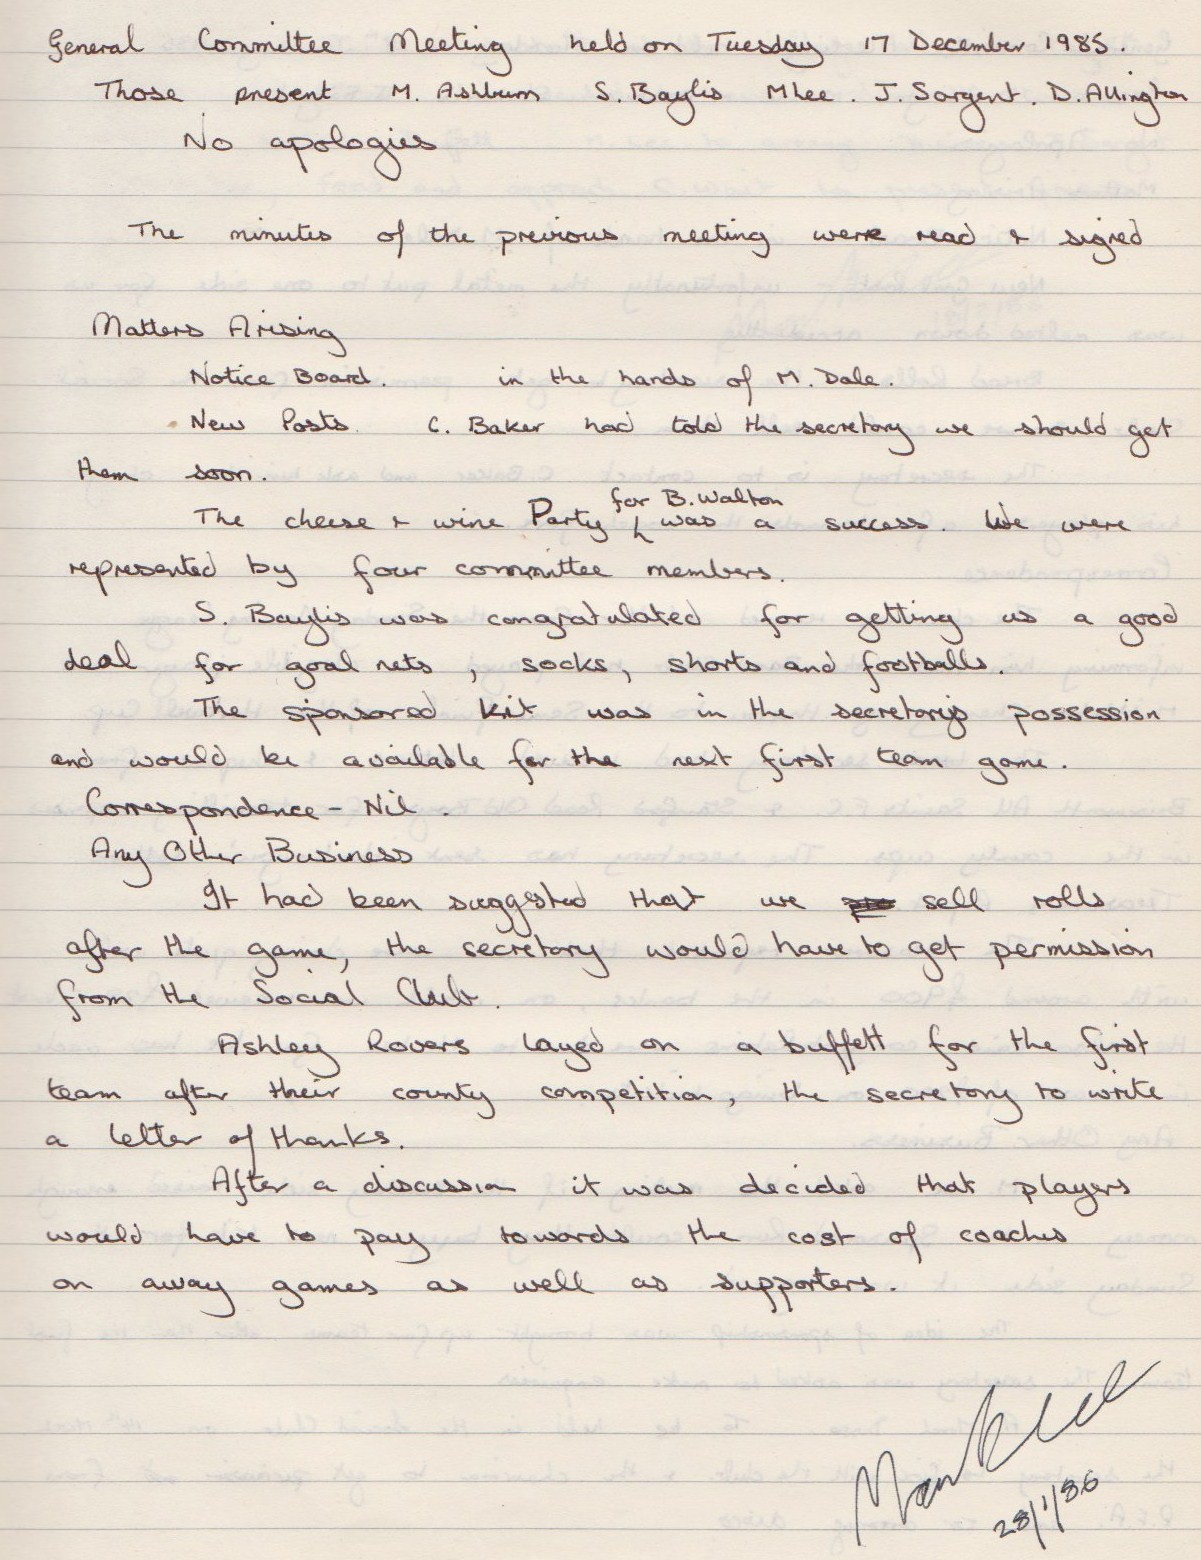 General Committee Meeting held on Tuesday 17 December 1985.
Those present M. Ashburn S. Baylis M Lee. J. Sargent. D. Allington
No apologies
The minutes of the previous meeting were read & signed
Matters Arising
Notice Board. in the hands of M. Dale.
New Posts. C. Baker had told the secretary we should get
them soon.
for B. Walton
The cheese & wine Party was a success. We were
represented by four committee members.
S. Baylis was congratulated for getting us a good
deal for goal nets, socks, shorts and footballs.
The sponsored kit was in the secretarys possession
and would be available for the next first team game.
Correspondence - Nil.
Any Other Business
It had been suggested that we sell rolls
after the game, the secretary would have to get permission
from the Social Club.
Ashley Rovers layed on a buffett for the first
team after their county competition, the secretary to write
a letter of thanks.
After a discussion it was decided that players
would have to pay towards the cost of coaches
on away games as well as supporters.
28/1/86